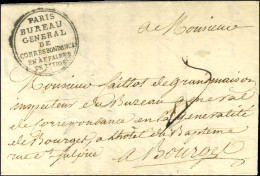 PARIS
BUREAU
GENERAL
DE
CORRESPONDANCE
EN AFFAIRES
de Monsieur
Monsieur taillot de grandmaison
inspecteur du Bureau general
de correspondance en la generalité
de Bourges a l'hotel du Bapteme
rue St Sulpice
a Bourges